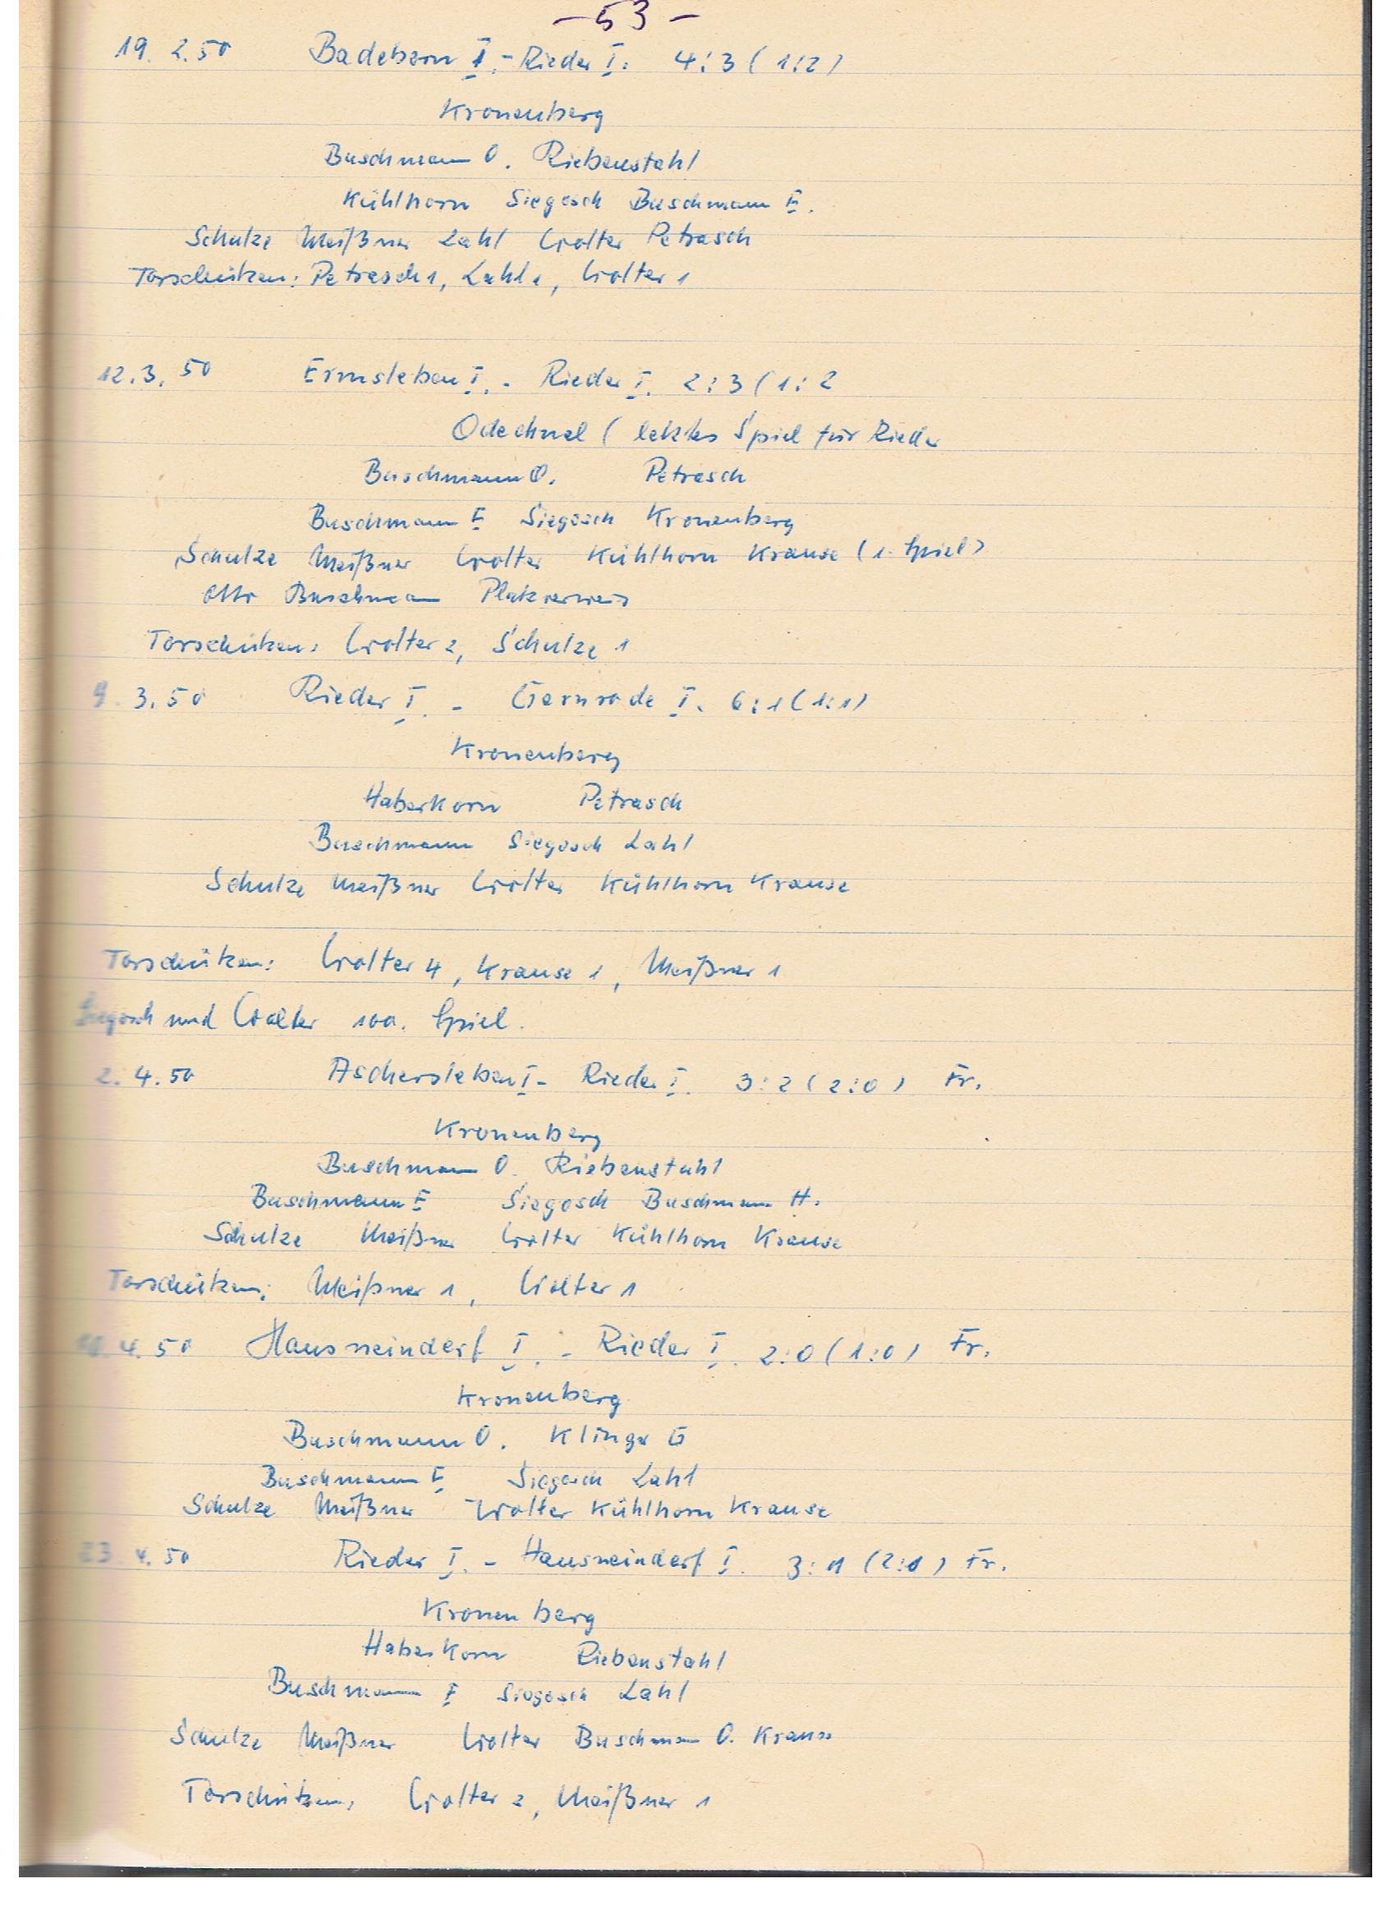 - 53 -
19. 2. 50 Badeborn I. - Rieder I. 4:3 (1:2)
Kronenberg
Buschmann O. Riebenstahl
Kühlhorn Siegosch Buschmann E.
Schulze Meißner Lahl Wolter Petrasch
Torschützen: Petrasch 1, Lahl 1, Wolter 1
12. 3. 50 Ermsleben I. - Rieder I. 2:3 (1:2
Odechnal ( letztes Spiel für Rieder
Buschmann O. Petrasch
Buschmann E Siegosch Kronenberg
Schulze Meißner Wolter Kühlhorn Krause (1. Spiel)
Otto Buschmann Platzverweis
Torschützen: Wolter 2, Schulze 1
9. 3. 50 Rieder I. - Gernrode I. 6:1 (1:1)
Kronenberg
Haberkorn Petrasch
Buschmann Siegosch Lahl
Schulze Meißner Wolter Kühlhorn Krause
Torschützen: Wolter 4, Krause 1, Meißner 1
Siegosch und Wolter 100. Spiel.
2. 4. 50 Aschersleben I - Rieder I. 3:2 (2:0) Fr.
Kronenberg
Buschmann O. Riebenstahl
Buschmann E Siegosch Buschmann H.
Schulze Meißner Wolter Kühlhorn Krause
Torschützen: Meißner 1, Wolter 1
10. 4. 50 Hausneindorf I. - Rieder I. 2:0 (1:0) Fr.
Kronenberg
Buschmann O. Klinge G
Buschmann E Siegosch Lahl
Schulze Meißner Wolter Kühlhorn Krause
23. 4. 50 Rieder I. - Hausneindorf I. 3:1 (2:1) Fr.
Kronenberg
Haberkorn Riebenstahl
Buschmann E Siegosch Lahl
Schulze Meißner Wolter Buschmann O. Krause
Torschützen: Wolter 2, Meißner 1